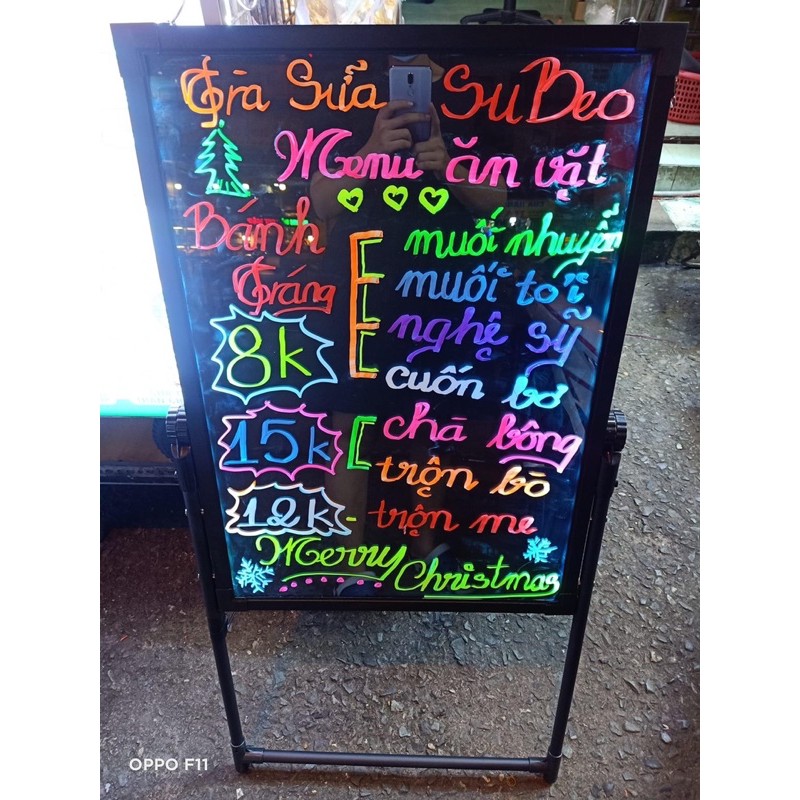 Trà Sữa Su Beo
Menu ăn vặt
Bánh Tráng
8k
muối nhuyễn
muối tỏi
nghệ sỹ
cuốn bơ
15k
chà bông
trộn bò
12k - trộn me
Merry Christmas
OPPO F11